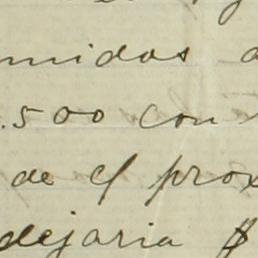 midos
.500 con
de el prox
dejaria $